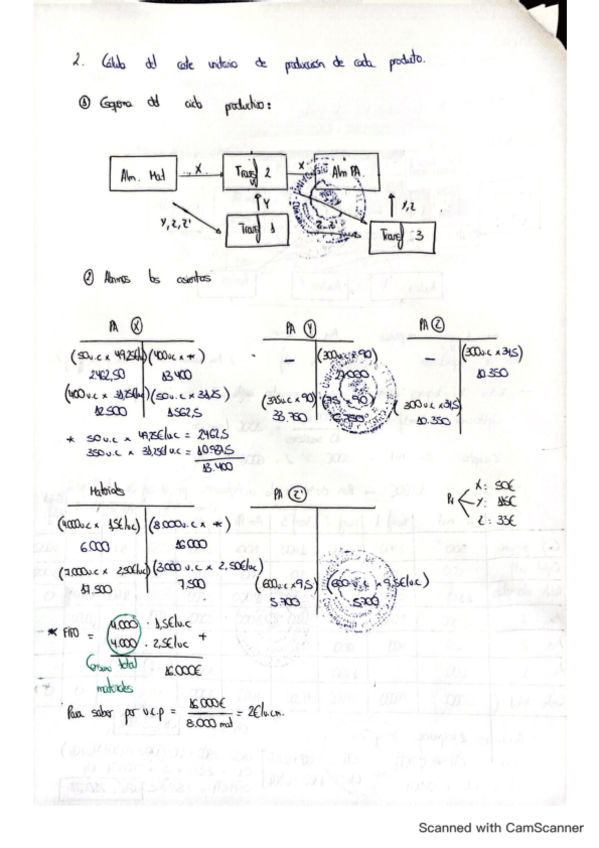 2. Cálculo del coste unitario de producción de cada producto.
① Esquema del ciclo productivo:
Alm. Mat
X
Transf 2
X
Alm PA.
Y
Y, Z, Z'
Y, Z
Transf 1
Z, Z'
Transf 3
② Abrimos los asientos
PA Ⓧ
PA Ⓨ
PA Ⓩ
(50u.c x 49,25€/uc) (400uc x *)
2462,50 13.400
- (300u.c x 90)
27.000
- (300u.c x 34,5)
10.350
(400u.c x 31,25€/uc) (50u.c x 31,25)
12.500 1.562,5
(375u.c x 90) (75 x 90)
33.750 6.750
(300u.c x 34,5)
10.350
* 50u.c x 49,25€/uc = 2462,5
350u.c x 31,25€/uc = 10.937,5
13.400
Materiales
PA Ⓩ'
X: 50€
(4.000u.c x 1,5€/uc) (8.000u.c x *)
6.000 16.000
(7.000u.c x 2,50€/uc) (3.000 u.c x 2,50€/uc)
17.500 7.500
Z: 33€
(600u.c x 9,5) (600 u.c x 9,5€/uc)
5.700 5.700
* FIFO = 4.000 · 1,5€/u.c
4.000 · 2,5€/uc +
16.000€
Consumo total
materiales
Para saber por u.c.p = 16.000€ / 8.000 mat = 2€/u.cm.
Scanned with CamScanner